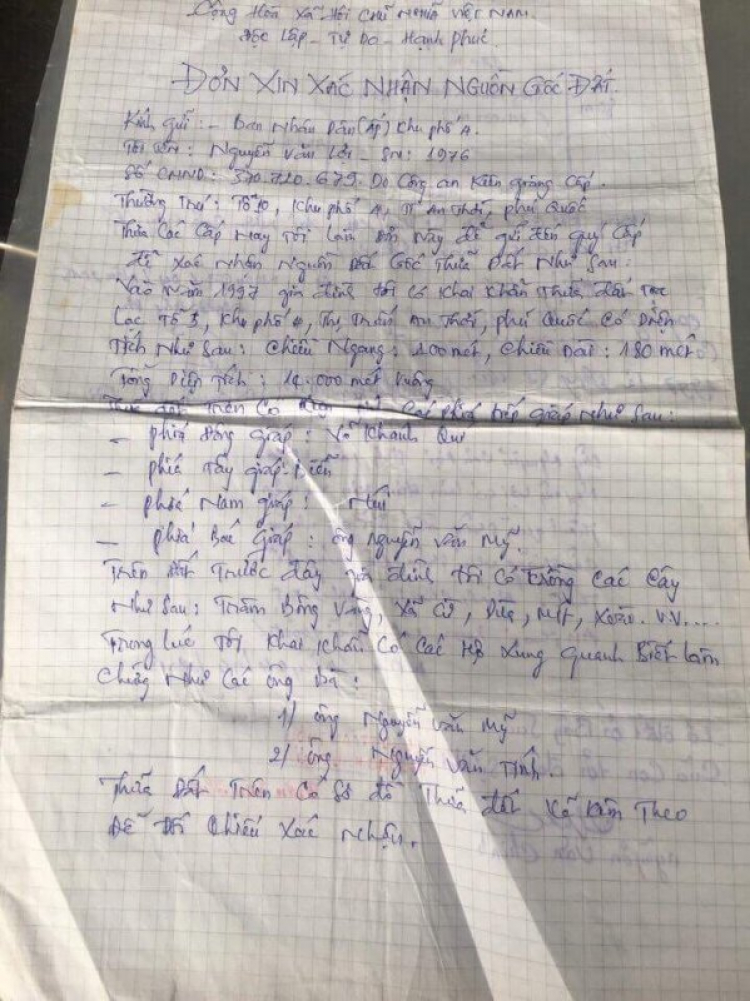 Cộng Hòa Xã Hội Chủ Nghĩa Việt Nam.
Độc Lập - Tự Do - Hạnh Phúc.
ĐƠN XIN XÁC NHẬN NGUỒN GỐC ĐẤT.
Kính gửi: - Ban Nhân Dân (ấp) Khu phố A.
Tôi tên: Nguyễn Văn Lợi - SN: 1976
Số CMND: 370.720.679. Do Công an Kiên giang Cấp.
Thường Trú: Tổ 10, Khu phố A, TT An Thới, phú Quốc
Thưa Các Cấp nay Tôi làm đơn này để gửi đến quý Cấp
để xác Nhận Nguồn Gốc Thửa Đất Như Sau:
Vào Năm 1997 gia đình tôi có Khai Khẩn Thửa đất Tọa
Lạc Tổ 3, Khu phố, Thị Trấn An Thới, phú Quốc Có Diện
Tích Như Sau: Chiều Ngang: 100 mét, Chiều Dài: 180 mét
Tổng Diện Tích: 14.000 mét vuông
đất Trên Có Các phía tiếp giáp Như Sau:
- phía Đông giáp: Võ Khanh Qui
- phía Tây giáp
- phía Nam giáp: Núi
- phía Bắc Giáp: ông Nguyễn Văn Mỹ.
Trên Đất Trước đây gia đình tôi có trồng Các Cây
Như Sau: Tràm Bông Vàng, Xà Cừ, Dừa, Mít, Xoài. V.V....
Trong lúc Tôi Khai Khẩn Có Các Hộ Xung Quanh Biết làm
Chứng Như Các ông Bà:
1/ ông Nguyễn Văn Mỹ
2/ ông Nguyễn Văn Tính.
Thửa Đất Trên Có Sơ đồ Thửa đất Vẽ Kèm Theo
Để Đối Chiếu Xác Nhận.